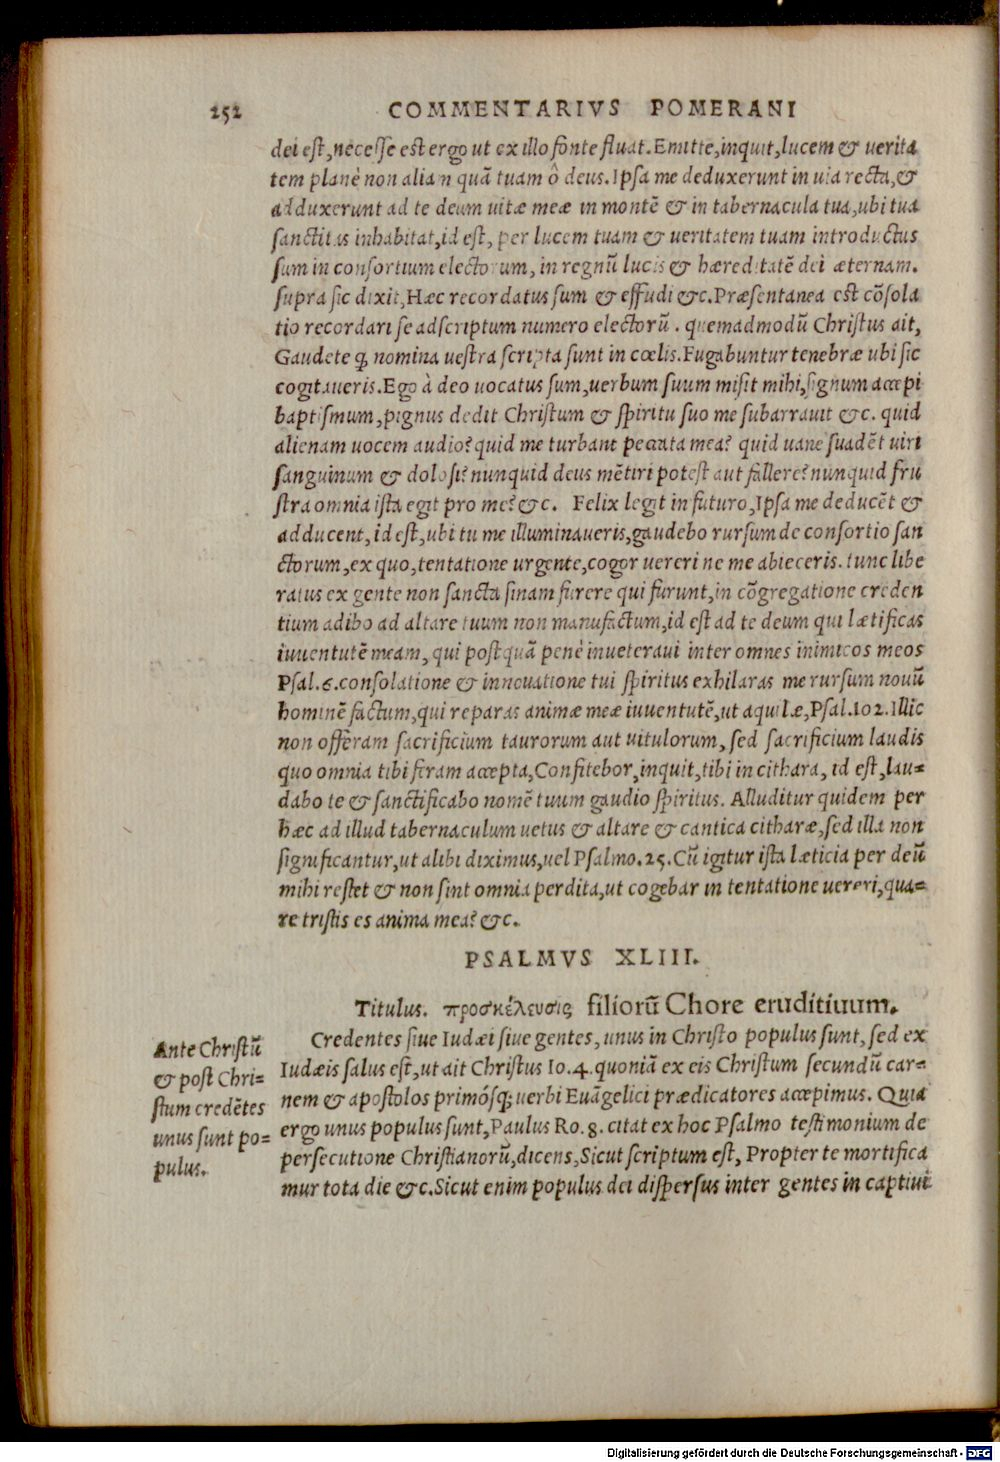 252 COMMENTARIVS POMERANI
dei eſt, neceſſe est ergo ut ex illo fonte fluat. Emitte, inquit, lucem & uerita
tem planè non aliam quã tuam ô deus. Ipſa me deduxerunt in uia recta, &
adduxerunt ad te deum uitæ meæ in montẽ & in tabernacula tua, ubi tua
ſanctitas inhabitat, id eſt, per lucem tuam & ueritatem tuam introductus
ſum in conſortium electorum, in regnũ lucis & hæreditatẽ dei æternam.
ſupra ſic dixit, Hæc recordatus ſum & effudi &c. Præſentanea est cõſola
tio recordari ſe adſcriptum numero electorũ. quemadmodũ Chriſtus ait,
Gaudete ꝙ nomina ueſtra ſcripta ſunt in cœlis. Fugabuntur tenebræ ubi ſic
cogitaueris. Ego à deo uocatus ſum, uerbum ſuum miſit mihi, ſignum accepi
baptiſmum, pignus dedit Chriſtum & ſpiritu ſuo me ſubarrauit &c. quid
alienam uocem audio? quid me turbant peccata mea? quid uane ſuadẽt uiri
ſanguinum & doloſi? nunquid deus mẽtiri poteſt aut fallere? nunquid fru
ſtra omnia iſta egit pro me? &c. Felix legit in futuro, Ipſa me deducẽt &
adducent, id eſt, ubi tu me illuminaueris, gaudebo rurſum de conſortio ſan
ctorum, ex quo, tentatione urgente, cogor uereri ne me abieceris. tunc libe
ratus ex gente non ſancta ſinam furere qui furunt, in cõgregatione creden
tium adibo ad altare tuum non manufactum, id eſt ad te deum qui lætificas
iuuentutẽ meam, qui poſtquã penè inueteraui inter omnes inimicos meos
Pſal. 6. conſolatione & innouatione tui ſpiritus exhilaras me rurſum nouũ
hominẽ factum, qui reparas animæ meæ iuuentutẽ, ut aquilæ, Pſal. 102. Illic
non offeram ſacrificium taurorum aut uitulorum, ſed ſacrificium laudis
quo omnia tibi feram accepta, Confitebor, inquit, tibi in cithara, id eſt, lau-
dabo te & ſanctificabo nomẽ tuum gaudio ſpiritus. Alluditur quidem per
hæc ad illud tabernaculum uetus & altare & cantica citharæ, ſed illa non
ſignificantur, ut alibi diximus, uel Pſalmo. 25. Cũ igitur iſta læticia per deũ
mihi reſtet & non ſint omnia perdita, ut cogebar in tentatione uereri, qua-
re triſtis es anima mea? &c.
PSALMVS XLIII.
Titulus. προσκέλευσις filiorũ Chore eruditiuum.
Credentes ſiue Iudæi ſiue gentes, unus in Chriſto populus ſunt, ſed ex
Iudæis ſalus eſt, ut ait Chriſtus Io. 4. quoniã ex eis Chriſtum ſecundũ car-
nem & apoſtolos primóſq; uerbi Euãgelici prædicatores accepimus. Quia
ergo unus populus ſunt, Paulus Ro. 8. citat ex hoc Pſalmo teſtimonium de
perſecutione Chriſtianorũ, dicens, Sicut ſcriptum eſt, Propter te mortifica
mur tota die &c. Sicut enim populus dei diſperſus inter gentes in captiui
Ante Chriſtũ
& poſt Chri-
ſtum credẽtes
unus ſunt po-
pulus.
Digitalisierung gefördert durch die Deutsche Forschungsgemeinschaft - DFG